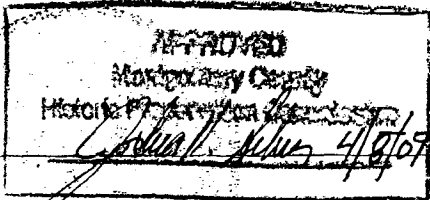 APPROVED
Montgomery County
Historic Preservation Commission
4/8/09